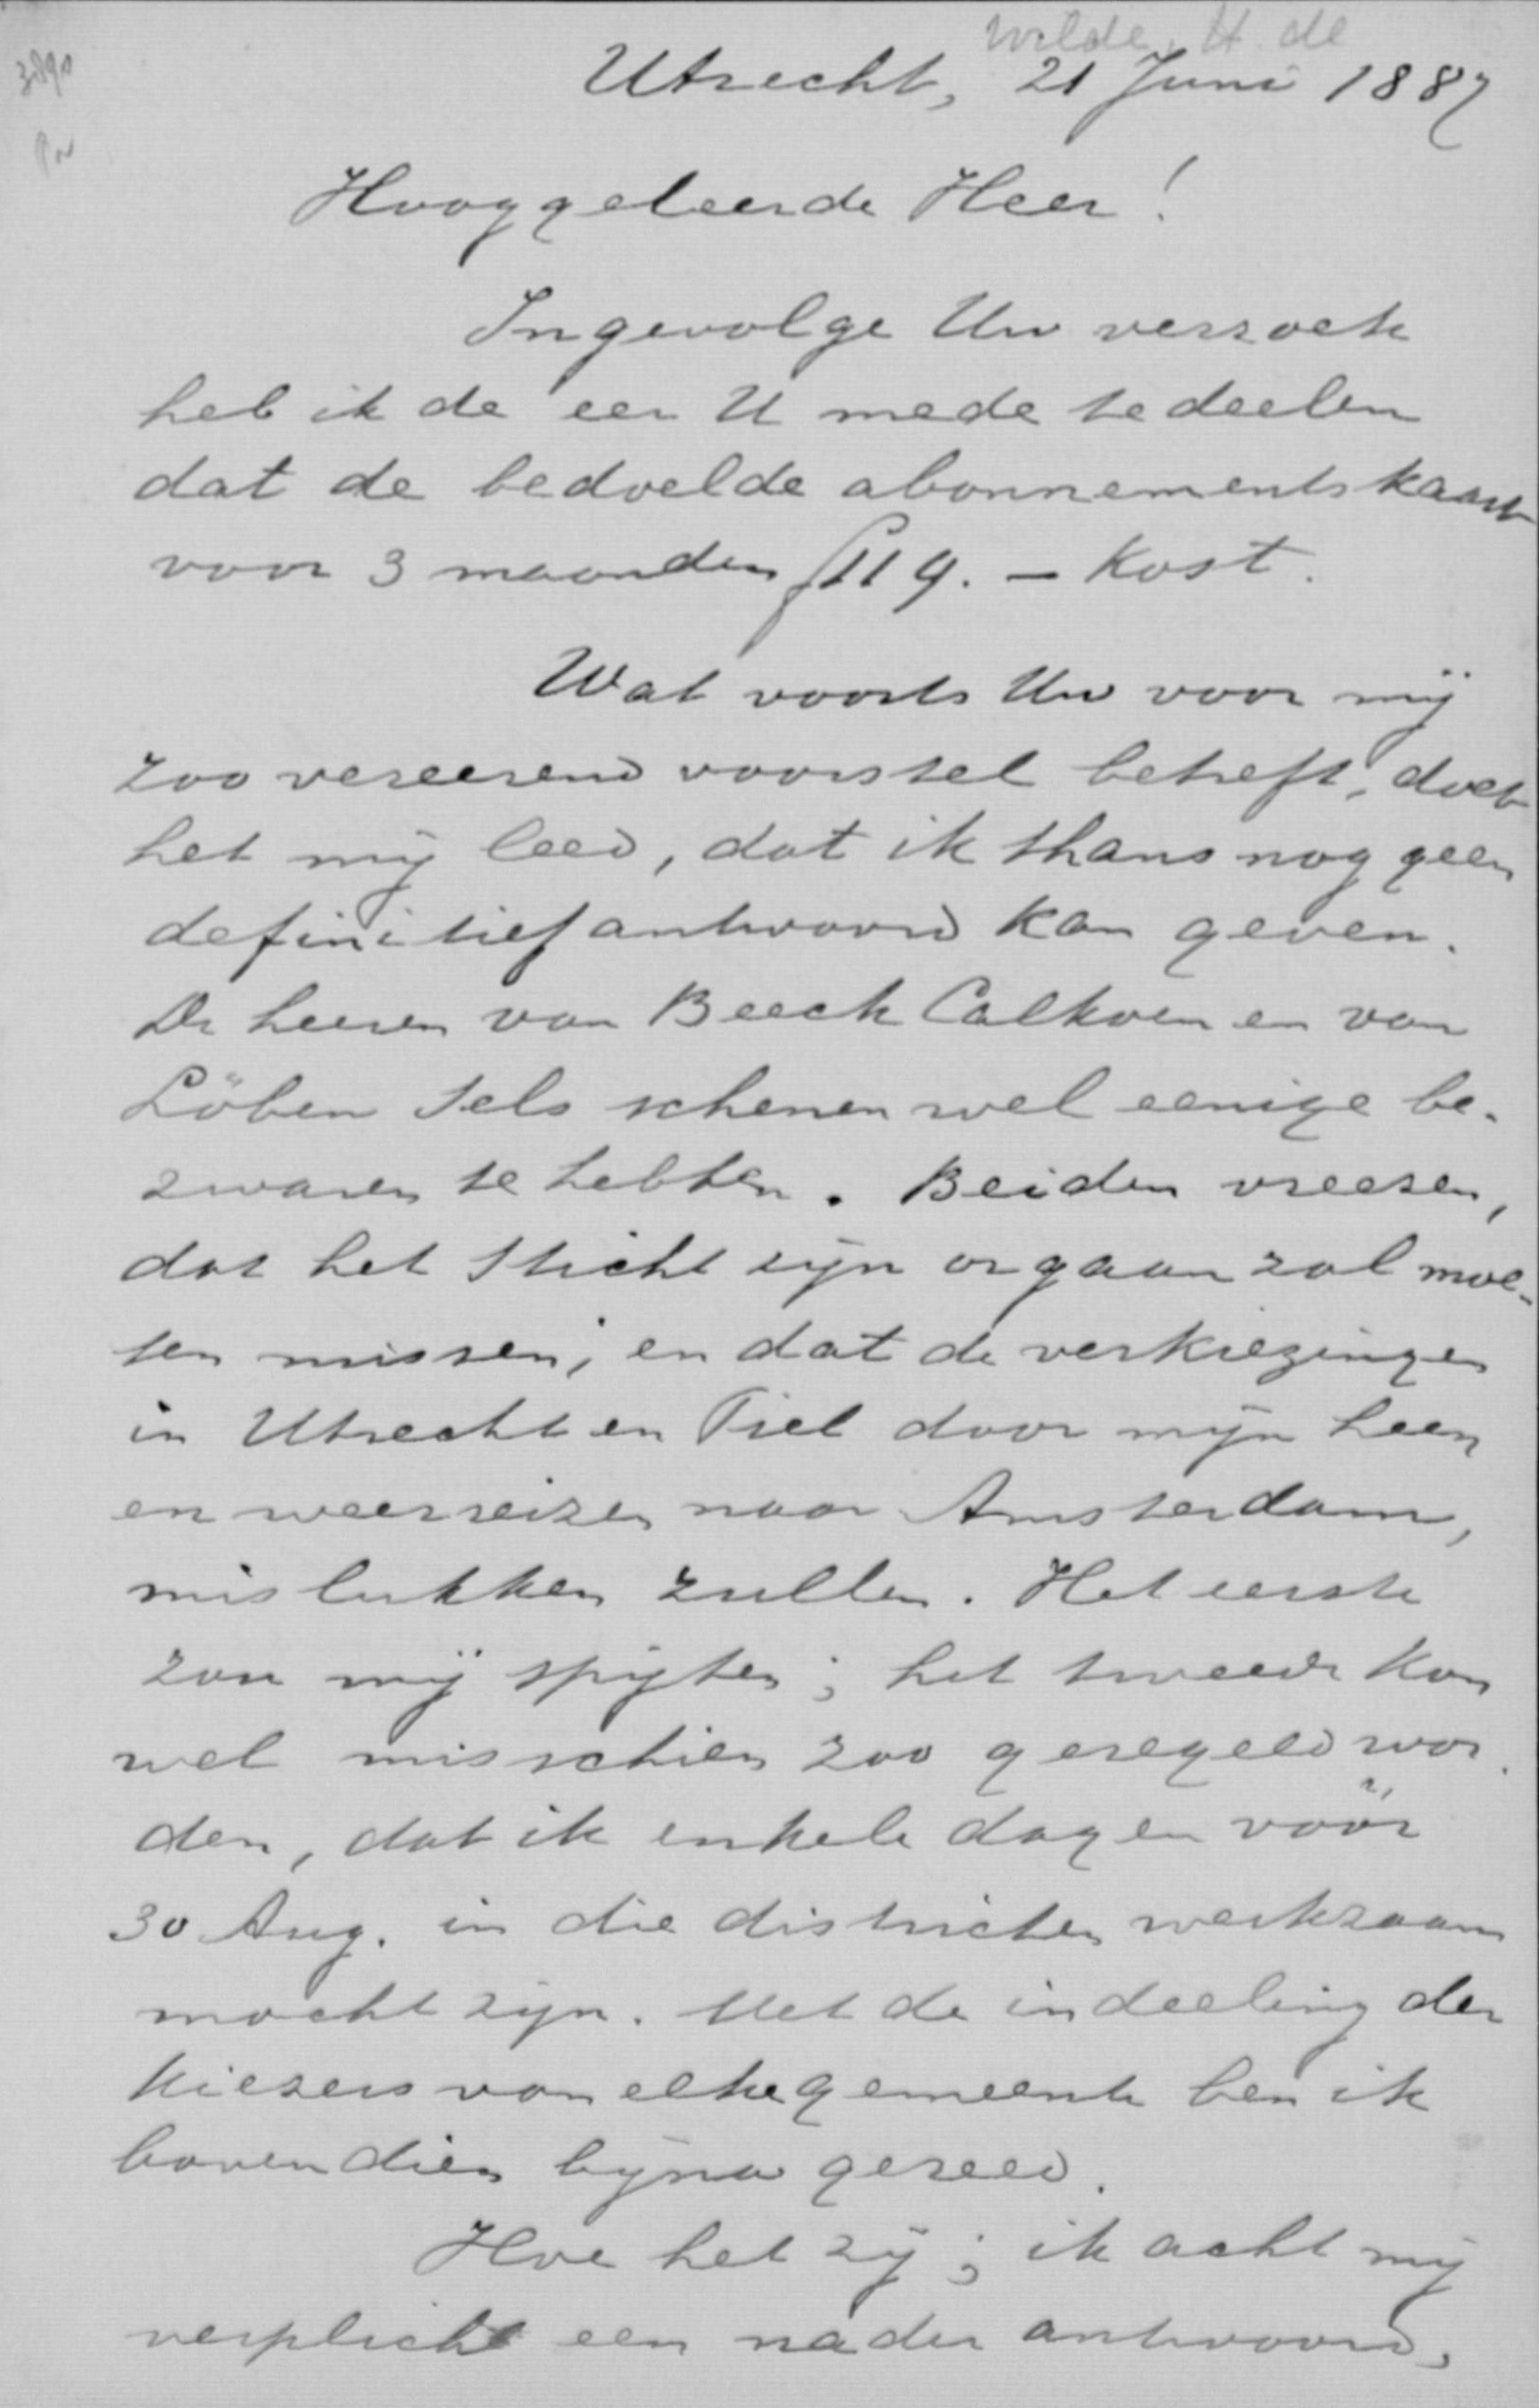 Wilde, H. de
Utrecht, 21 Juni 1887
Hooggeleerde Heer!
Ingevolge Uw verzoek
heb ik de eer U mede te deelen
dat de bedoelde abonnementskaart
voor 3 maanden f 119.— kost.
Wat voorts Uw voor mij
zoo vereerend voorstel betreft, doet
het mij leed, dat ik thans nog geen
definitief antwoord kan geven.
De heeren van Beeck Calkoen en van
Löben Sels schenen wel eenige be-
zwaren te hebben. Beiden vreezen,
dat het Sticht zijn orgaan zal moe-
ten missen; en dat de verkiezingen
in Utrecht en Tiel door mijn heen
en weerreizen naar Amsterdam,
mislukken zullen. Het eerste
zou mij spijten; het tweede kon
wel misschien zoo geregeld wor-
den, dat ik enkele dagen vóór
30 Aug. in die districten werkzaam
mocht zijn. Met de indeeling der
kiezers van elke gemeente ben ik
bovendien bijna gereed.
Hoe het zij; ik acht mij
verplicht een nader antwoord,